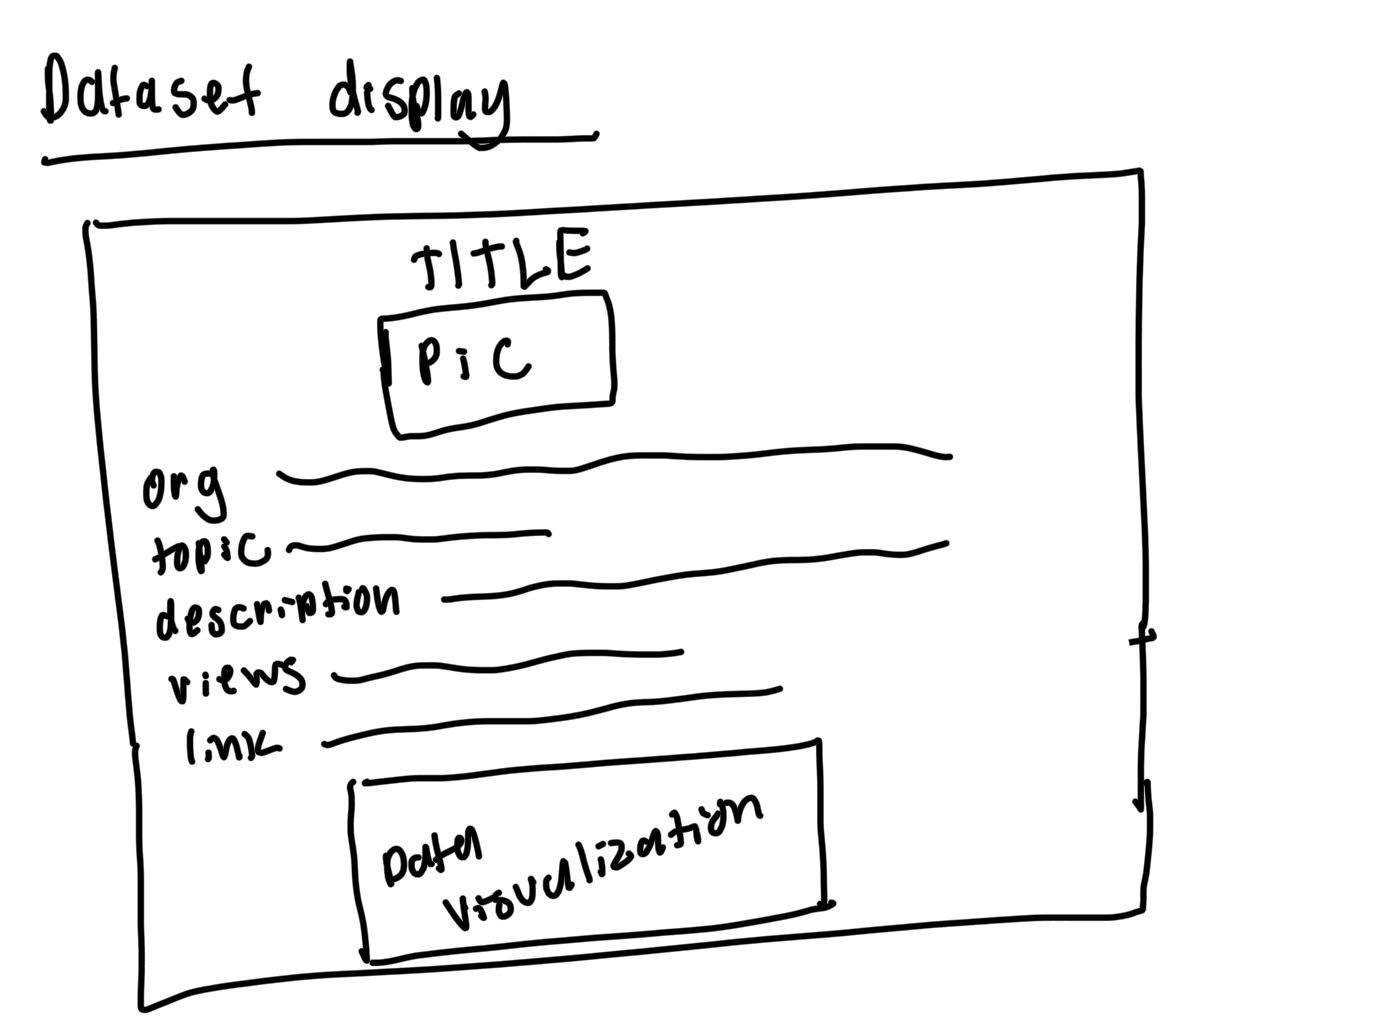 Dataset display
TITLE
PiC
org
topic
description
views
link
Data
Visualization